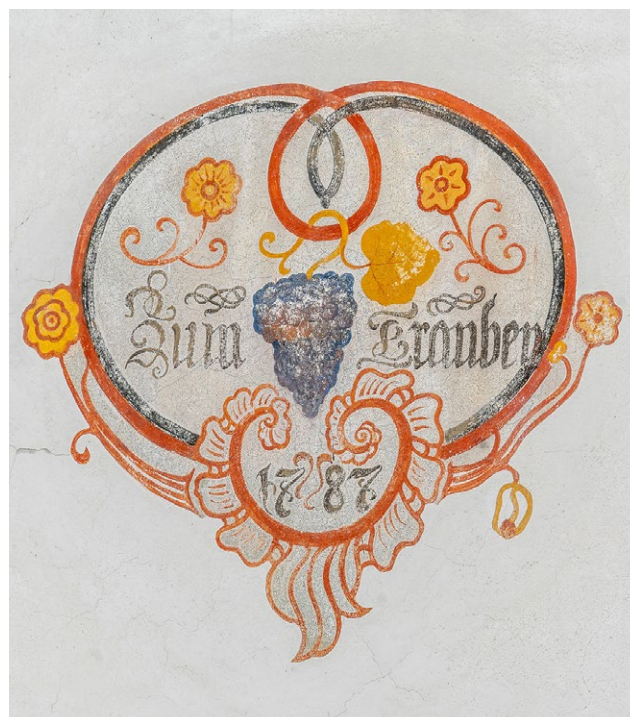 Zum Trauben
1787